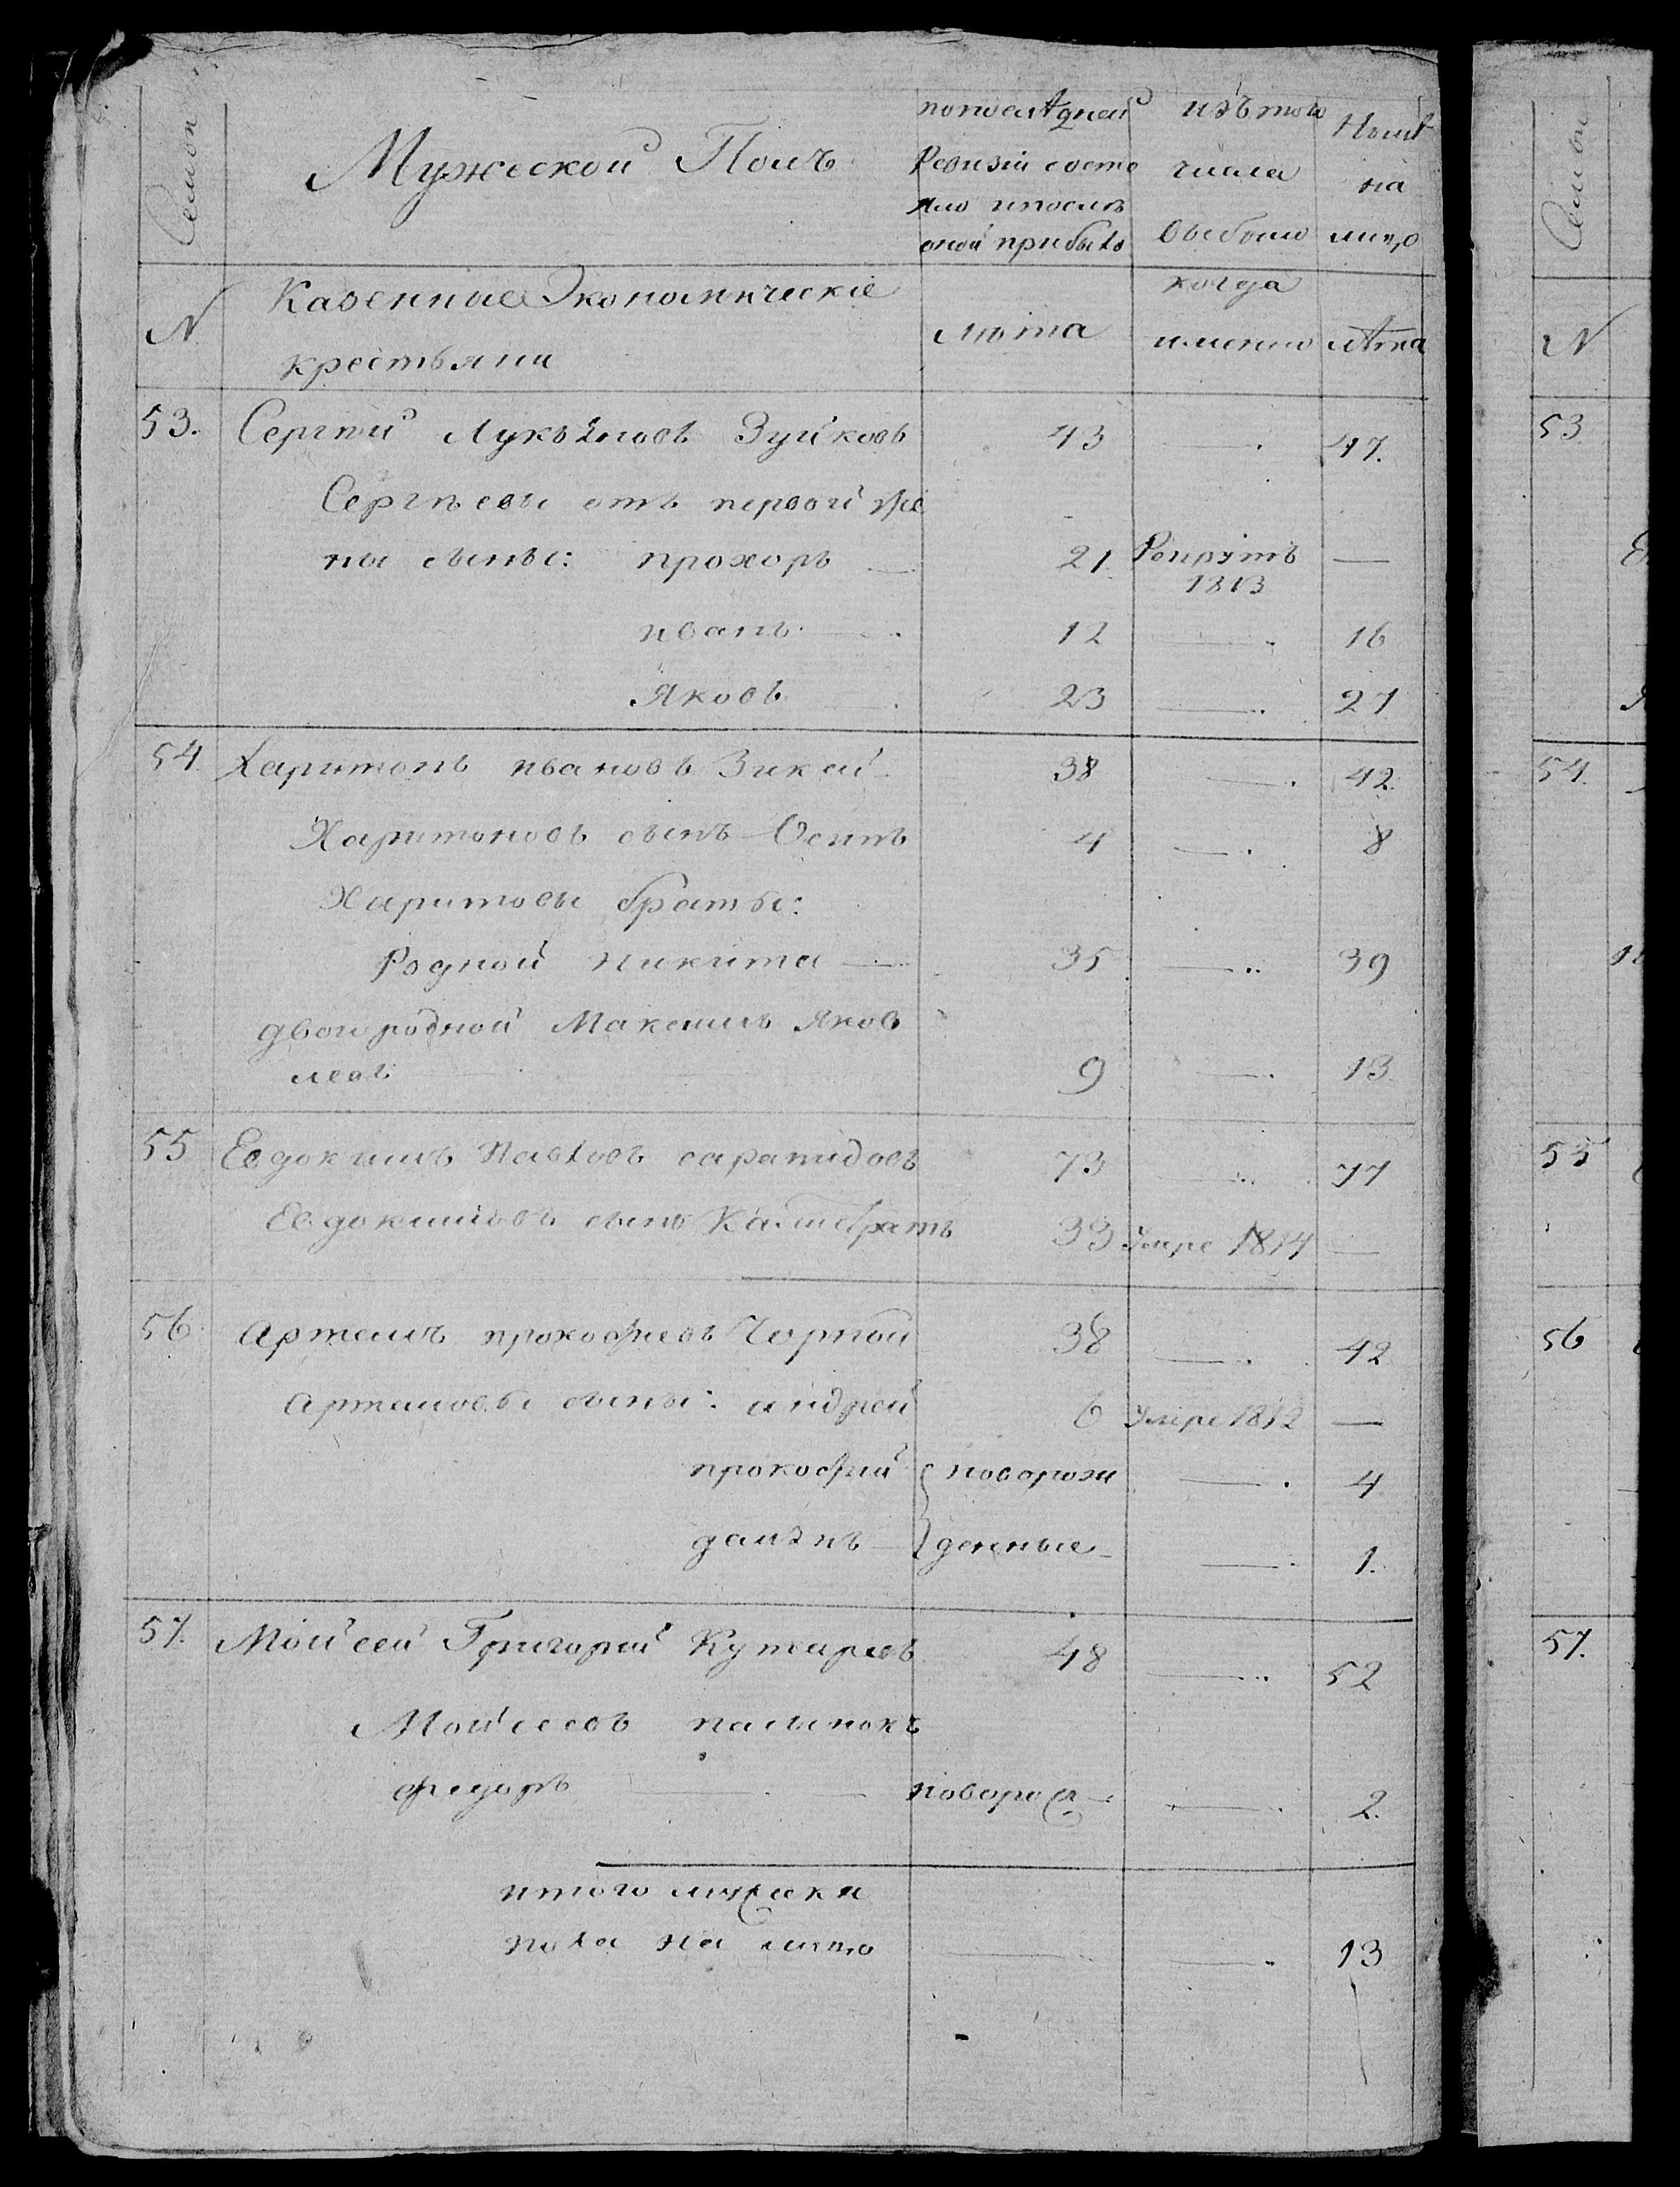 Семьи
Мужеской Полъ
попослѣдней Ревизiи состо яло ипослѣ оной прибыло
изъ того числа выбыло
Нынѣ на лицо
N Казенные Экономическiе крестьяни
лѣта
когда имянно
лѣта
53. Сергѣй Лукьяновъ Зуйковъ 43 — 47.
Сергѣевы отъ первой же
ны сыны: прохоръ — 21 Рекрутъ 1813 —
иванъ — 12 — 16
Яковъ — 23 — 27
54 Харитонъ ивановъ Зикей 38 — 42.
Харитоновъ сынъ Осипъ 4 — 8
Харитовы братьи:
Родной Никита — 35 — 39
двоиродной Максимъ Яков
левъ — 9 — 13
55 Евдокимъ Павловъ 73 — 77
Евдокимовъ сынъ 33 Умре 1814 —
56. Артемъ прокофиевъ Чорной 38 — 42
Артемовы сыны: андрей 6 Умре 1812 —
прокофий { новорож — 4
{ денные — 1.
57. Мойсей Григорий Кутырев 48 — 52
Мойсеевъ пасынокъ
федоръ — новорож — 2.
итого мужска
пола на лицо — — 13
Семьи
N
53
54.
55
56
57.